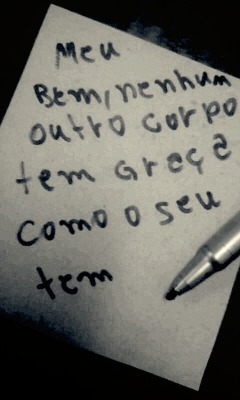 Meu
Bem, nenhum
outro corpo
tem Graça
como o seu
tem